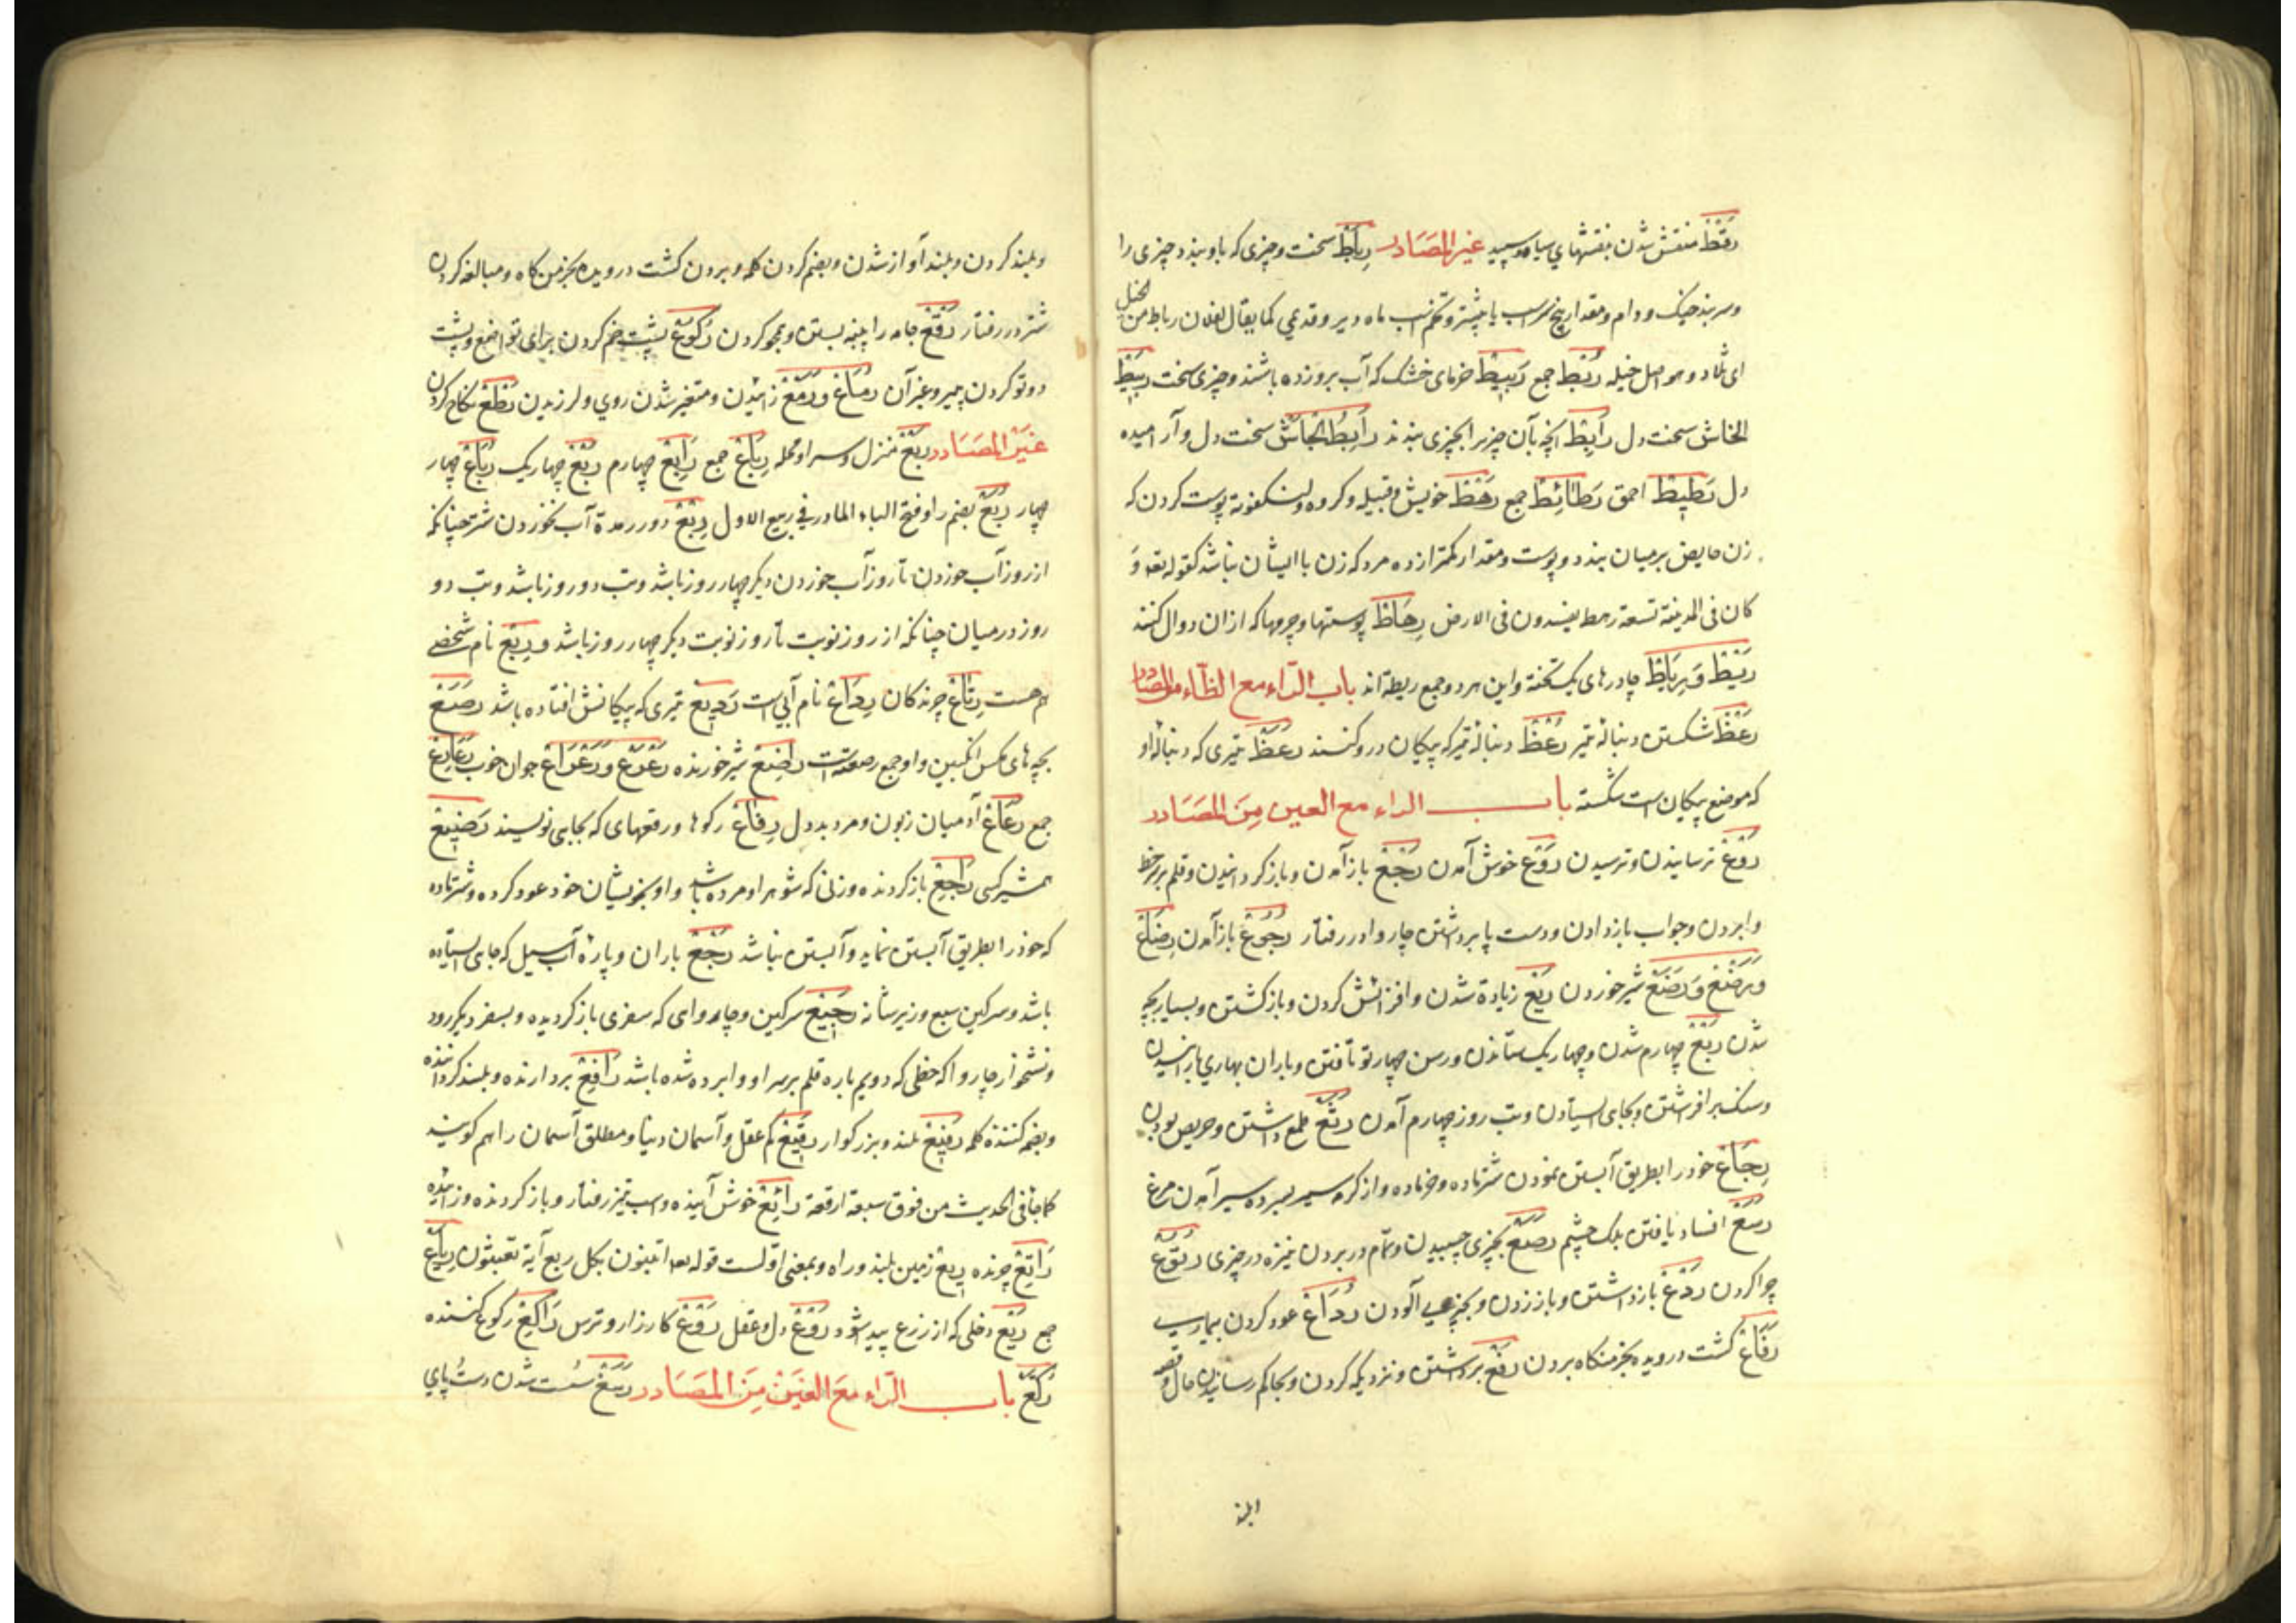 رقط منقش شدن بنقشهای سیاه و سپید غیر المصادر رباط سخت و چیزی که باو بندد چیزی را
و سر بند خیک و دام و مقدار پنج سر اسب یا بیشتر و تخم اسب ماه دیر و قدیمی کما یقال لفلان رباط من الخیل
ای تلاد و هو اصل خیله ربط جمع ربیط خرمای خشک که آب بر و زده باشند و چیزی سخت ربیط
الجاش سخت دل رابط آنچه بآن چیزیرا بچیزی بندند رابط الجاش سخت دل و آرامیده
دل رطیط احمق رطائط جمع رهط خویش و قبیله و کروه و پوست کردن که
زن حایض بر میان بندد و پوست و مقدار کمتر از ده مرد که زن با ایشان نباشد کقوله تعه و
کان فی المدینة تسعة رهط یفسدون فی الارض رهاط پوستها و چرمها که ازان دوال کنند
ریط و ریاط چادرهای یک تخته و این هر دو جمع ریطه اند باب الراء مع الظاء من المصادر
رعظ شکستن دنبالهٔ تیر رعظ دنبالهٔ تیر که پیکان درو کنند رعظ تیری که دنبالهٔ او
که موضع پیکان است شکسته باب الراء مع العین من المصادر
روع ترسانیدن و ترسیدن روع خوش آمدن رجع باز آمدن و باز کردانیدن و قلم بر سر خط
وابردن و جواب باز دادن و دست پا برداشتن چاروا در رفتار رجوع باز آمدن رضاع
و رضع و رضع شیر خوردن ریع زیادة شدن و افزایش کردن و باز کشتن و بسیار بچه
شدن ربع چهارم شدن و چهار یک ستاندن و رسن چهار تو تافتن و باران بهاری بارانیدن
و سنک بر افرشتن و بجای ایستادن و تب روز چهارم آمدن رثع طمع داشتن و حریص بودن
رجاع خود را بطریق آبستن نمودن شتر ماده و خر ماده و از کرمسیر بسردسیر آمدن مرغ
رسع افساد یافتن پلک چشم رصع بچیزی چسپیدن و تمام در بردن نیزه در چیزی رتوع
چرا کردن ردع باز داشتن و باز زدن و بچیزی آلودن رداع عود کردن بیماری
رفاع کشت درویده بخرمنکاه بردن رفع برداشتن و نزدیک کردن و بحاکم رسانیدن حال و قصه
و بلند کردن و بلند آواز شدن و بضم کردن کلمه و بردن کشت درویده بخرمن کاه و مبالغه کردن
شتر در رفتار رقع جامه را پینه بستن و هجو کردن رکوع پشت خم کردن برای تواضع و پشت
دو تو کردن پیر و غیر آن رماع و رمع زائیدن و متغیر شدن روی و لرزیدن رطع نکاح کردن
غیر المصادر ربع منزل و سرا و محله رباع جمع رابع چهارم ربع چهار یک رباع چهار
چهار ربع بضم را و فتح الباء المادر فی ربیع الاول ربع دور مدة آب نخوردن شتر چنانکه
از روز آب خوردن تا روز آب خوردن دیکر چهار روز باشد و تب دو روز باشد و تب دو
روز در میان چنانکه از روز نوبت تا روز نوبت دیکر چهار روز باشد و ربع نام شخصی
هم هست رتاع چرند کان رداع نام آبی است ردیع تیری که پیکانش افتاده باشد رصع
بچه های مکس انکبین و او جمع رصعة است راضع شیر خورنده رعرع و رعراع جوان خوب رعارع
جمع رعاع آدمیان زبون و مرد بد دل رقاع رکوها و رقعهای که بجایی نویسند رضیع
همشیر کسی راجع باز کردنده و زنی که شوهر او مرده باشد و او بخویشان خود عود کرده و شتر ماده
که خود را بطریق آبستن نماید و آبستن نباشد رجع باران و پارهٔ آب سیل که جای ایستاده
باشد و سرکین سبع و زیر شانه رجیع سرکین و چاروای که سفری باز کردیده و بسفر دیکر رود
و نشخوار چاروا که خطی که دویم باره قلم بر سر او وابرده شده باشد رافع بردارنده و بلند کرداننده
و بضم کنندهٔ کلمه رفیع بلند و بزرکوار رقیع کم عقل و آسمان دنیا و مطلق آسمان را هم کویند
کما جاء فی الحدیث من فوق سبعة ارقعة رائع خوش آینده و اسب تیز رفتار و باز کردنده و زاینده
راتع چرنده ریع زمین بلند و راه و بمعنی اولست قوله تعه اتبنون بکل ریع آیة تعبثون ریاع
جمع ریع دخلی که از زرع پیدا شود روع دل و عقل روع کارزار و ترس راکع رکوع کننده
رکع باب الراء مع الغین من المصادر رسغ سست شدن دست پای
بلند